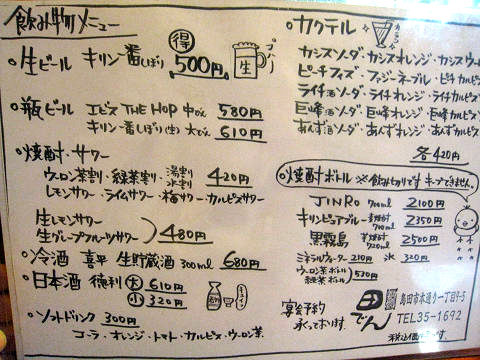 飲み物メニュー
○生ビール キリン一番しぼり 得 500円 生
○瓶ビール エビス THE HOP 中びん 580円
キリン一番しぼり(生)大びん 610円
○焼酎・サワー
ウーロン茶割・緑茶割・湯割・水割 420円
レモンサワー・ライムサワー・梅サワー・カルピスサワー
生レモンサワー
生グレープフルーツサワー 480円
○冷酒 喜平 生貯蔵酒 300ml 680円
○日本酒 徳利 大 610円
小 320円
○ソフトドリンク 300円
コーラ・オレンジ・トマト・カルピス・ウーロン茶
○カクテル
カシスソーダ・カシスオレンジ・カシスウー
ピーチフィズ・ファジーネーブル・ピーチカルピ
ライチ酒ソーダ・ライチオレンジ・ライチカルピ
巨峰酒ソーダ・巨峰オレンジ・巨峰カルピス
あんず酒ソーダ・あんずオレンジ・あんずカルピス
各420円
○焼酎ボトル ※飲み切りです キープできません。
JINRO 700ml 2100円
キリンピュアブルー 麦焼酎 700ml 2350円
黒霧島 芋焼酎 720ml 2500円
ミネラルウォーター 210円 氷 320円
ウーロン茶ボトル
緑茶ボトル 530円
宴会予約
承っております。
田でん
島田市本通り一丁目9-5
TEL35-1692
税込価格です。